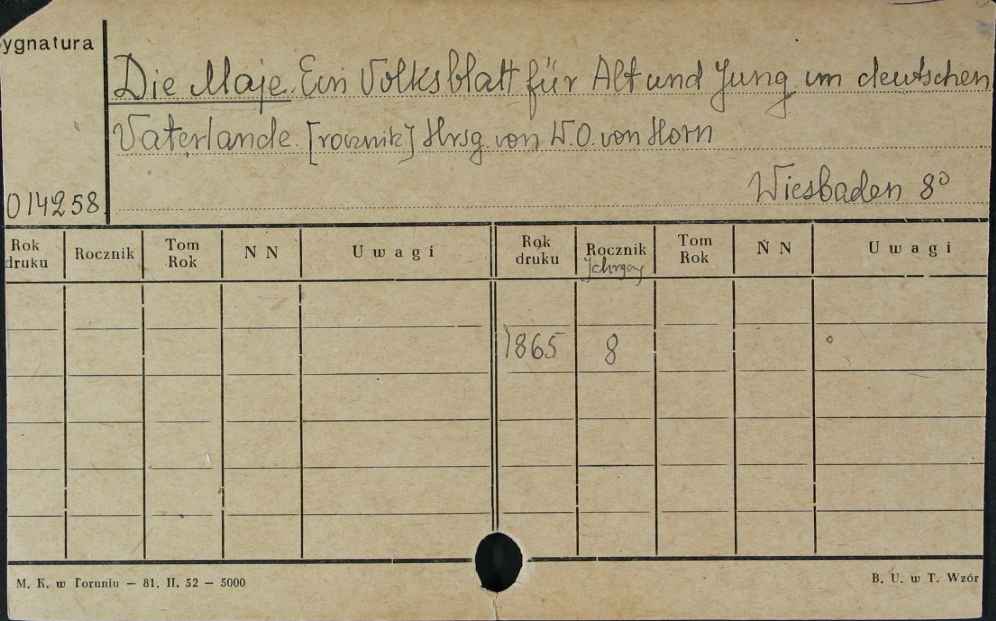 ygnatura
Die Maje. Ein Volksblatt für Alt und Jung im deutschen
Vaterlande. [rocznik] Hrsg. von W.O. von Horn
Wiesbaden 8°
014258
Rok druku Rocznik Tom Rok N N Uwagi Rok druku Rocznik Tom Rok N N Uwagi
1865 8
M. K. w Toruniu — 81. II. 52 — 5000
B. U. w T. Wzór